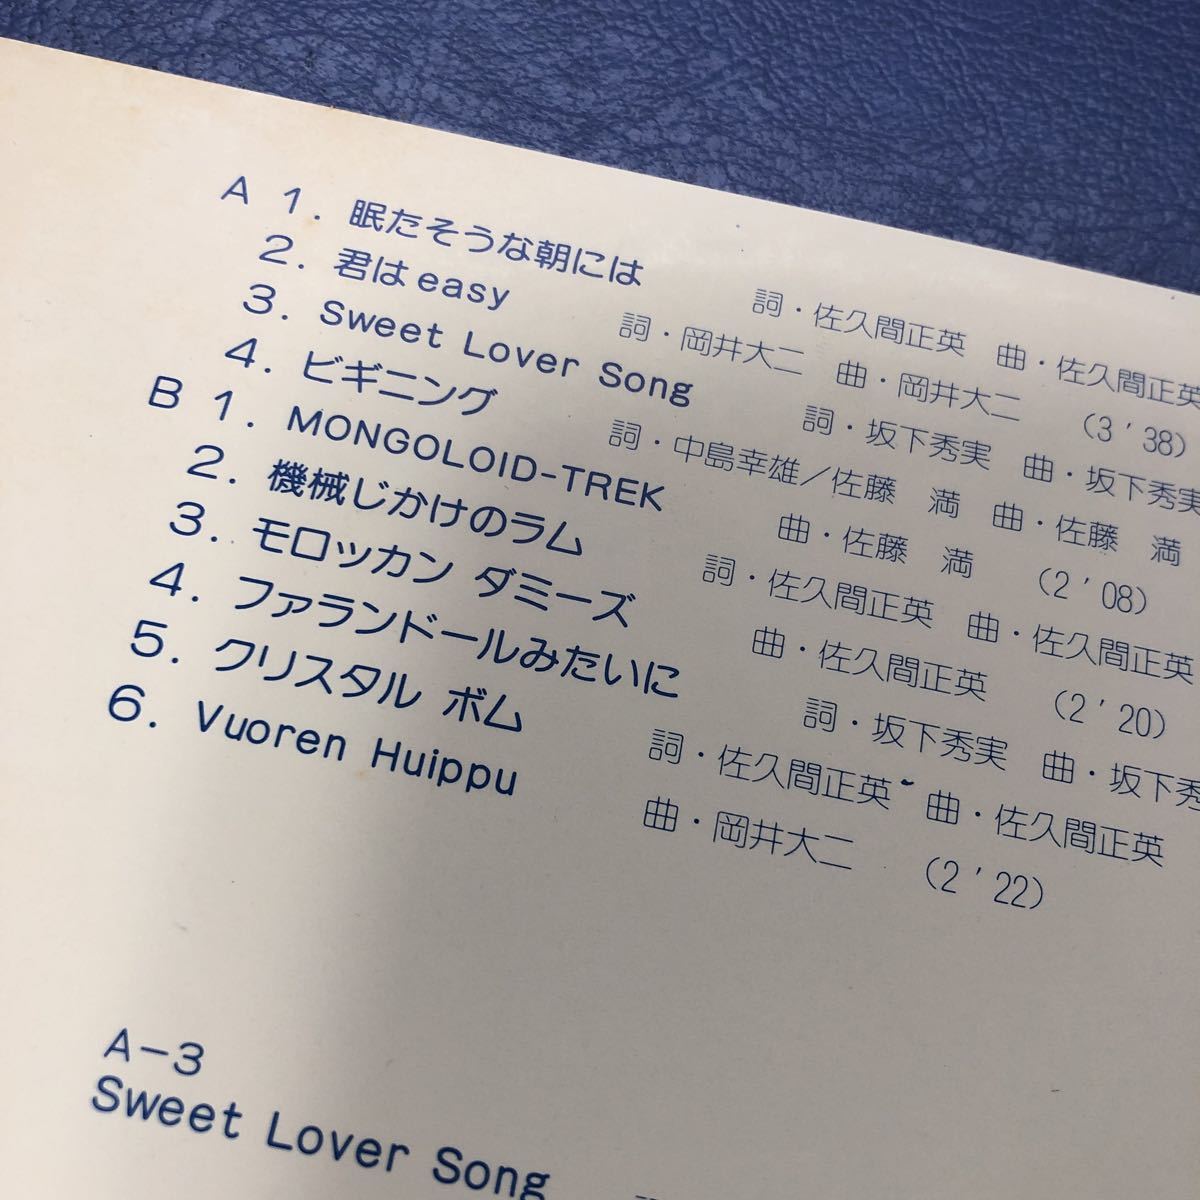 A 1. 眠たそうな朝には 詞・佐久間正英 曲・佐久間正英
2. 君はeasy 詞・岡井大二 曲・岡井大二 (3'38)
3. Sweet Lover Song 詞・坂下秀実 曲・坂下秀実
4. ビギニング 詞・中島幸雄/佐藤 満 曲・佐藤 満
B 1. MONGOLOID-TREK 曲・佐藤 満 (2'08)
2. 機械じかけのラム 詞・佐久間正英 曲・佐久間正英
3. モロッカン ダミーズ 曲・佐久間正英 (2'20)
4. ファランドールみたいに 詞・坂下秀実 曲・坂下秀
5. クリスタル ボム 詞・佐久間正英 曲・佐久間正英
6. Vuoren Huippu 曲・岡井大二 (2'22)
A-3
Sweet Lover Song